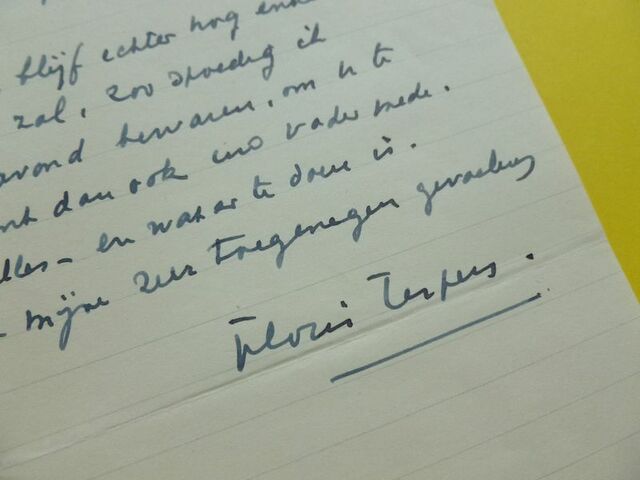 blijf echter nog enk
zal, zoo spoedig ik
avond bewaren, om u te
dan ook uw vader mede.
alles – en wat er te doen is.
mijne zeer toegenegen gevoelens
Floris